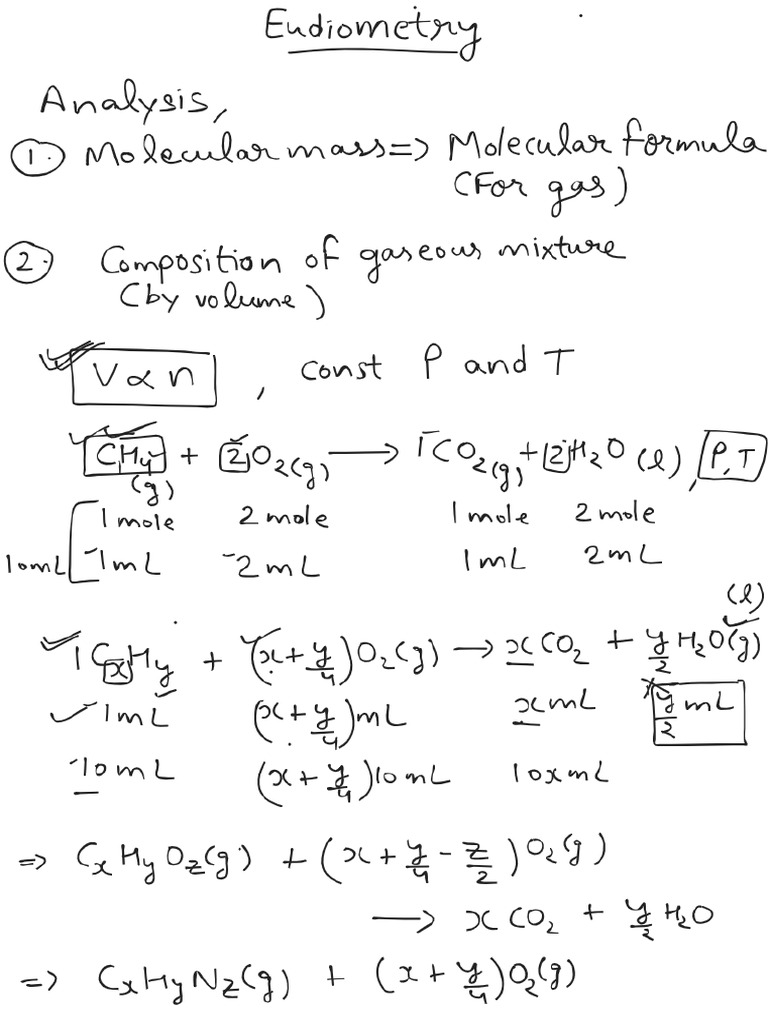 Eudiometry
Analysis,
1. Molecular mass => Molecular formula
(For gas)
2. Composition of gaseous mixture
(by volume)
V ∝ n , const P and T
CH4(g) + 2O2(g) → 1CO2(g) + 2H2O (l), P,T
1 mole 2 mole 1 mole 2 mole
10mL 1mL 2mL 1mL 2mL
(l)
1CxHy + (x+y/4)O2(g) → xCO2 + y/2 H2O(g)
1mL (x+y/4)mL xmL y/2 mL
10mL (x+y/4)10mL 10xmL
=> CxHyOz(g) + (x+y/4-z/2)O2(g)
→ xCO2 + y/2 H2O
=> CxHyNz(g) + (x+y/4)O2(g)